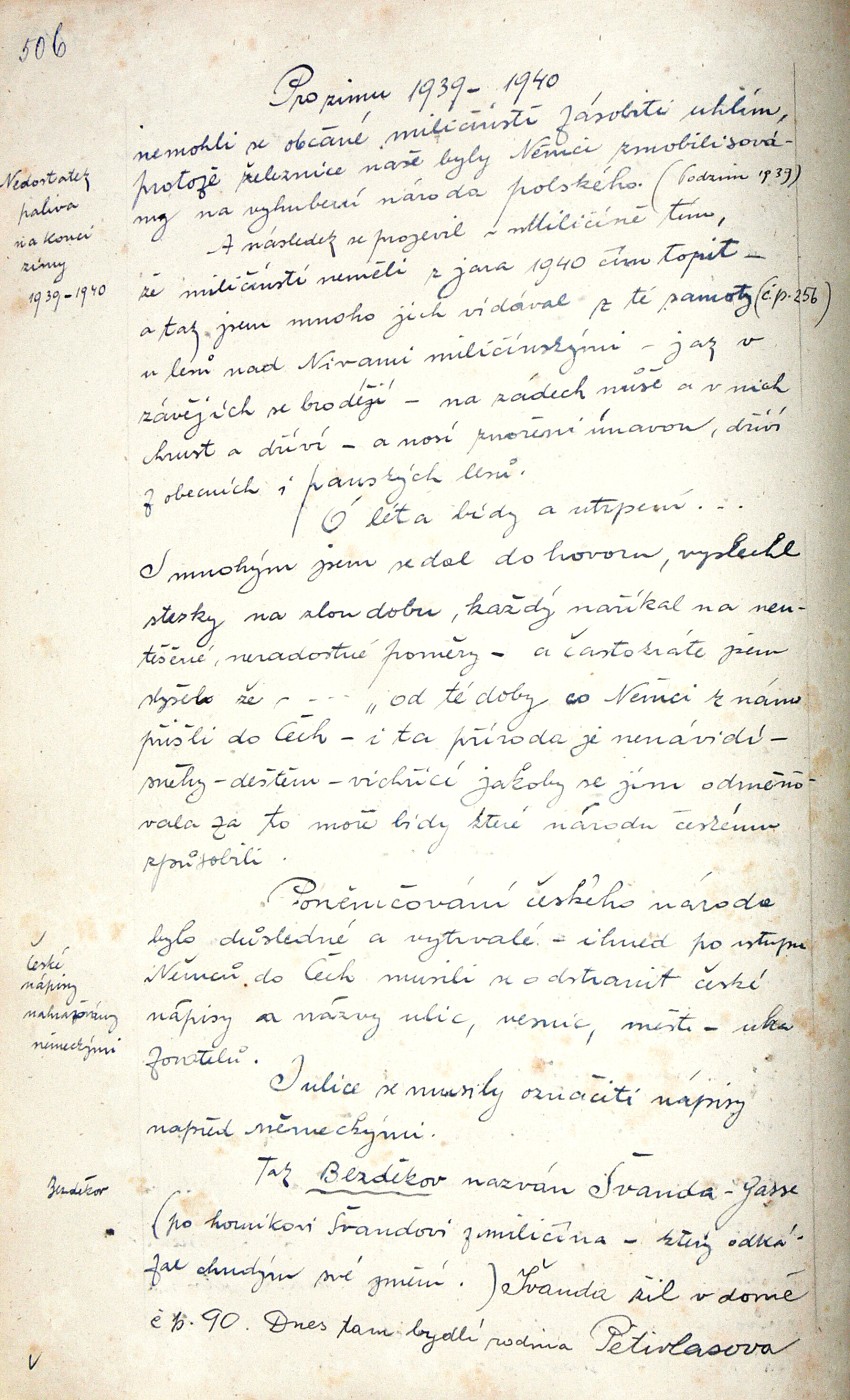 506
Pro zimu 1939 – 1940
nemohli se občané miličínští zásobiti uhlím,
protože železnice naše byly Němci zmobilisová-
ny na vyhubení národa polského. (Podzim 1939)
Nedostatek
paliva
na konci
zimy
1939–1940
A následek se projevil v Miličíně tím,
že miličínští neměli z jara 1940 čím topit –
a tak jsem mnoho jich vídával z té samoty (č.p. 256)
u lesů nad Nivami miličínskými – jak v
závějích se brodějí – na zádech nůše a v nich
chrust a dříví – a nosí znořeni únavou, dříví
z obecních i panských lesů.
Ó léta bídy a utrpení . . .
S mnohým jsem se dal do hovoru, vyslechl
stesky na zlou dobu, každý naříkal na neu-
těšené, neradostné poměry – a častokráte jsem
slyšel že - - - - „od té doby co Němci k nám
přišli do Čech – i ta příroda je nenávidí –
sněhy – deštěm – vichřicí jakoby se jim odměňo-
vala za to moře bídy které národu českému
způsobili .
Poněmčování českého národa
bylo důsledné a vytrvalé. – ihned po vstupu
Němců do Čech musili se odstranit české
nápisy a názvy ulic, vesnic, městi – uka
zovatelů.
České
nápisy
nahrazovány
německými
I ulice se musily označiti nápisy
napřed německými.
Tak Bezděkov nazván Švanda – Gasse
Bezděkov
(po horníkovi Švandovi z Miličína – který odká-
zal chudým své jmění . ) Švanda žil v domě
č p. 90. Dnes tam bydlí rodina Petrvlasova
v